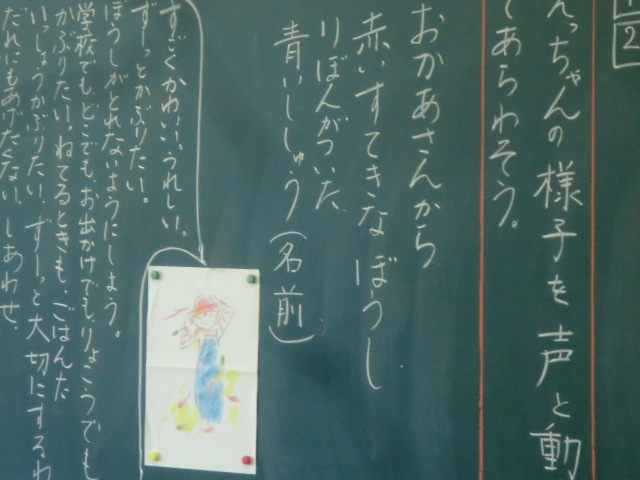 2
っちゃんの様子を声と動
であらわそう。
おかあさんから
赤いすてきなぼうし
りぼんがついた
青いししゅう(名前)
すごくかわいい、うれしい。
ずーっとかぶりたい。
ぼうしがとれないようにしよう。
学校でも、どこでも、お出かけでも、りょこうでも
かぶりたい。ねてるときも、ごはんた
いっしょうかぶりたい、ずーっと大切にするわ
だれにもあげたくない、しあわせ。